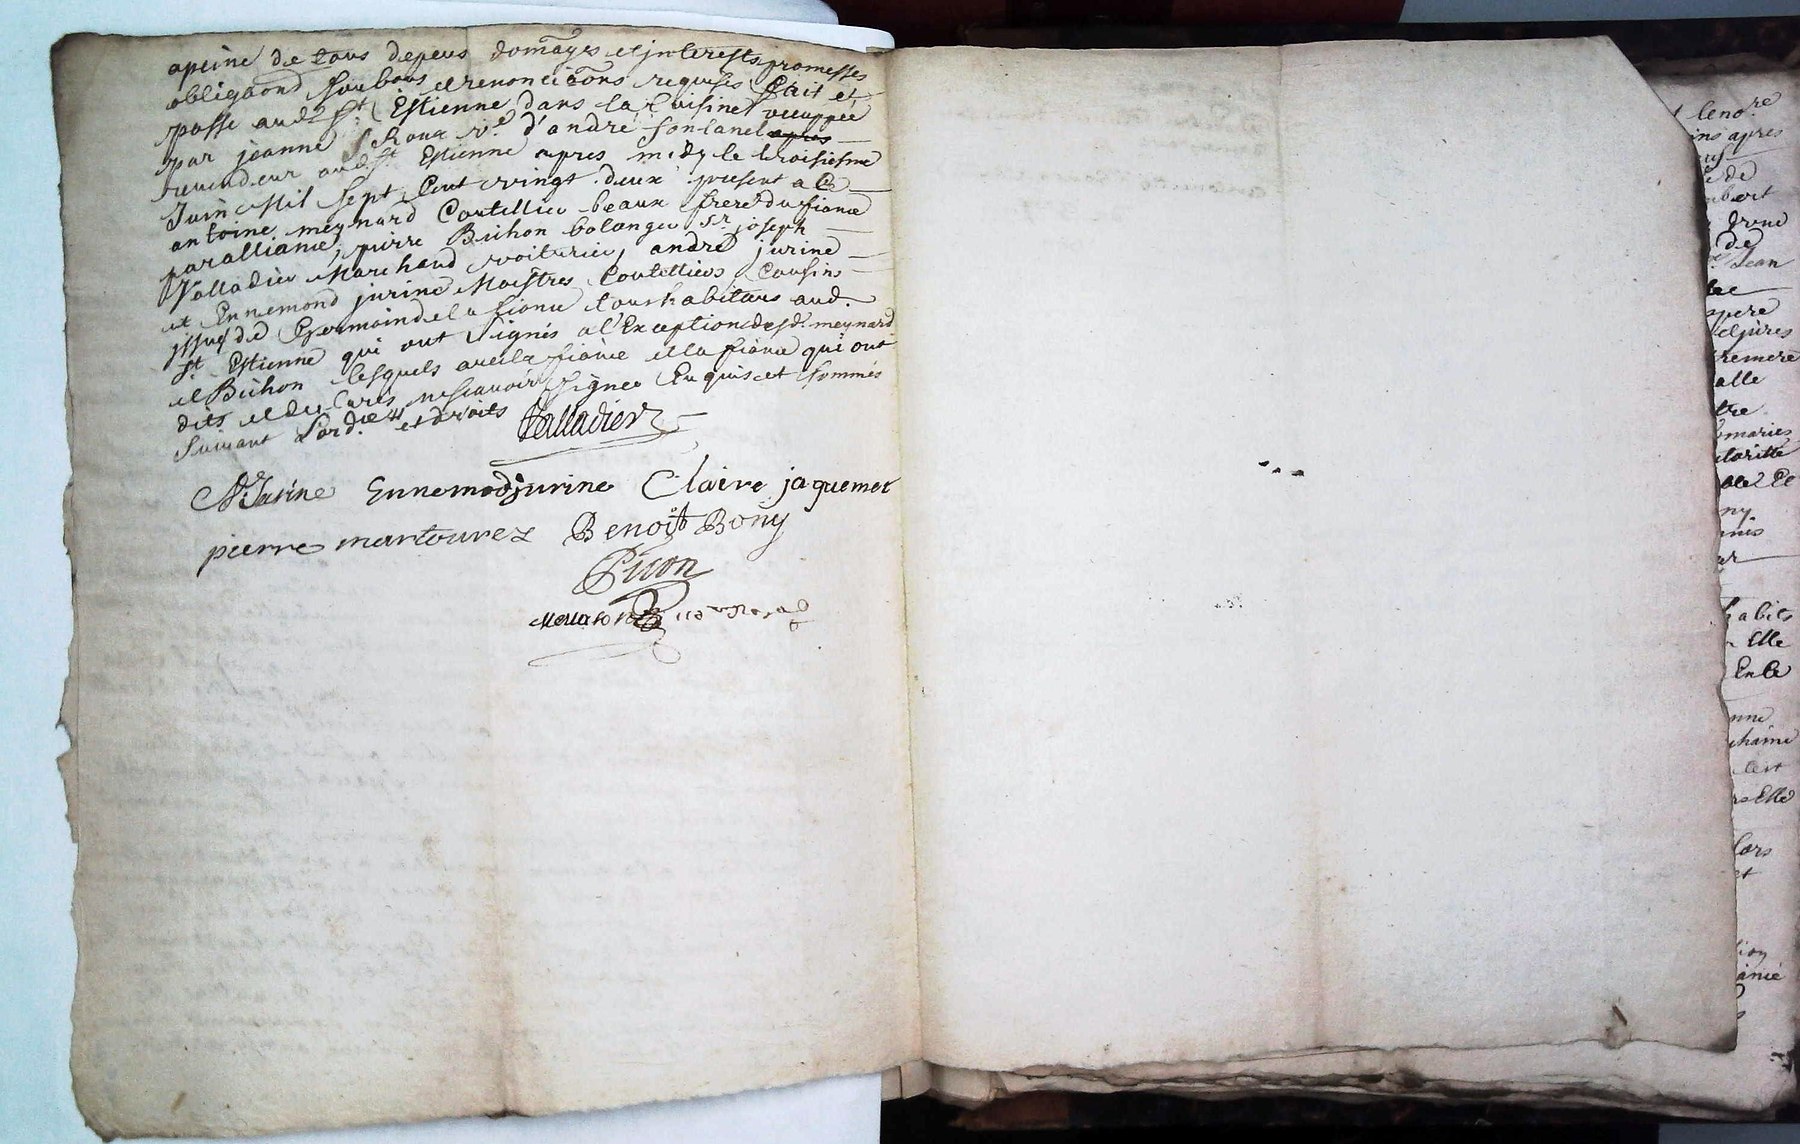 apeine de tous depens domages et interests promesses
obligaõns soubons et renonciãons requises fait et
passé aud. St Estienne dans la Cuisine occuppée
par jeanne Roux ve. d'andré fontanel apres
revendeur aud. St Estienne apres midy le troisiesme
Juin Mil sept Cent vingt deux present a Ce
antoine meynard Coutellier beaux frere du fiancé
par alliance, pierre Bichon bolanger, Sr. joseph
Valladier Marchand voiturier, andré jurine
et Ennemond jurine Maistres Coutelliers Cousins
issus de Germain de la fiancée tous habitans aud.
St. Estienne qui ont signés a l'Exception desd. meynard
et Bichon lesquels avec le fiancé et la fiancée qui ont
dits et declarés ne scavoir signer Enquis et sommés
suivant l'ord.ce et droits Valladier
A. Jurine Ennemod jurine Claire jaquemet
pierre martourez Benoit Bony
Picon
lenore
ins apres
de
de
Jean
pere
alle
maries
Pe
ny
habits
Elle
En Ce
chaine
cest
Elle
lors
et